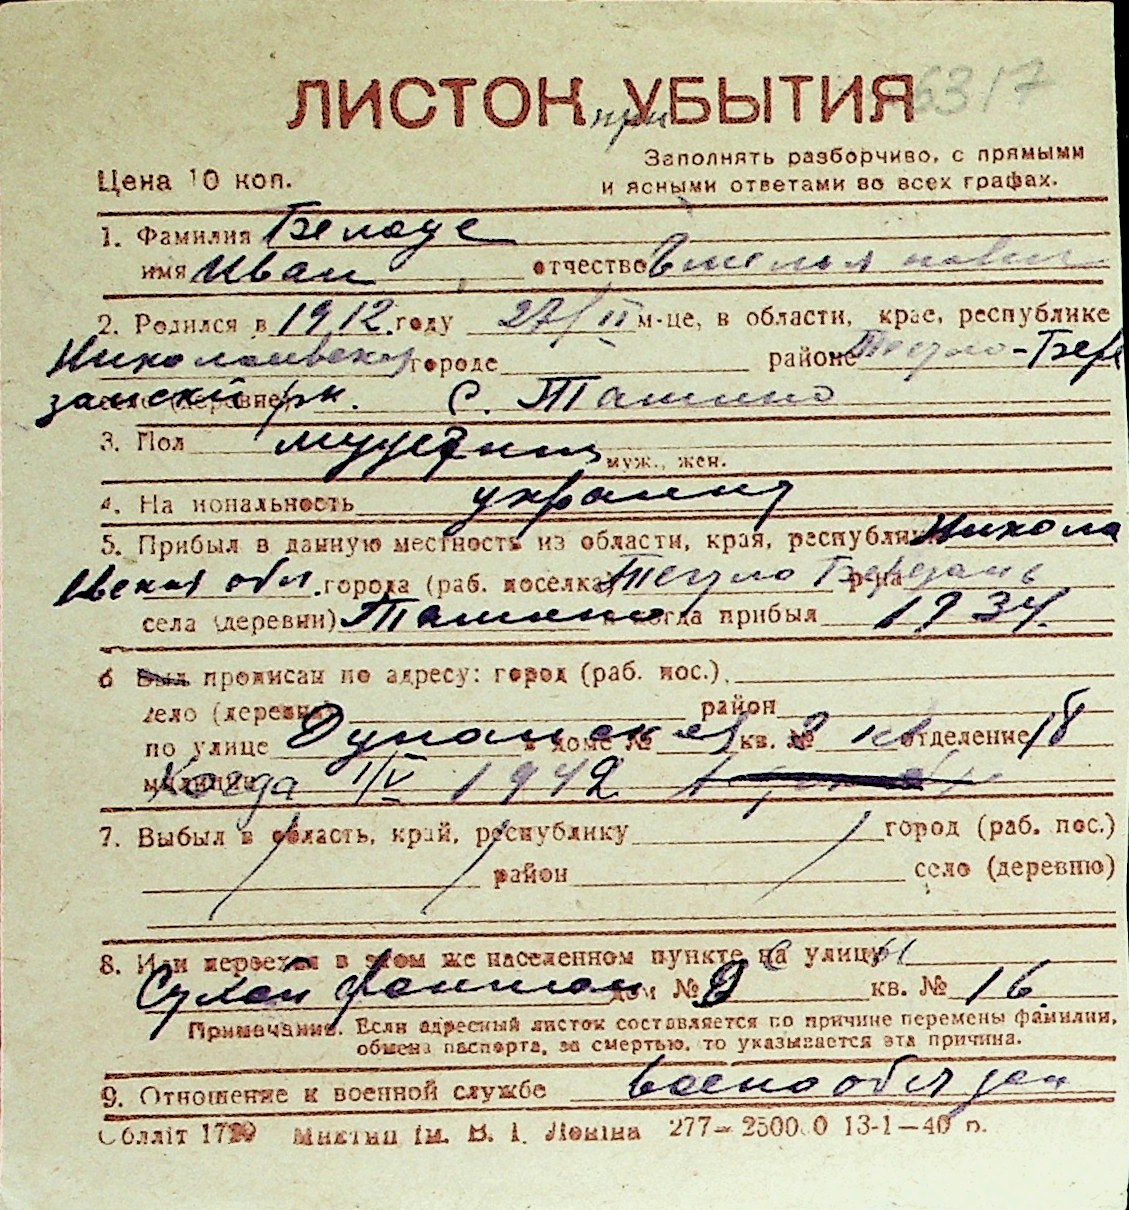 6317
ЛИСТОК УБЫТИЯ
при
Заполнять разборчиво, с прямыми
Цена 10 коп.
и ясными ответами во всех графах.
1. Фамилия Белоус
имя Иван отчество
2. Родился в 1912 году 27/II м-це, в области, крае, республике
Николаевской городе районе Тегуло-Бере
занский рн. село (деревне) с. Ташино
3. Пол мужской муж., жен.
4. Национальность украинец
5. Прибыл в данную местность из области, края, республики Никола
евская обл. города (раб. поселка) Тегуло Березань р-на
села (деревни) Ташино и когда прибыл 1934.
6 Был прописан по адресу: город (раб. пос.)
село (деревня) район
по улице Дунайская в доме № кв. № 8 кв отделение 18
милиции Когда 1/V 1942
7. Выбыл в область, край, республику город (раб. пос.)
район село (деревню)
8. Или переехал в этом же населенном пункте на улицу
дом № 2 кв. № 16
Примечание. Если адресный листок составляется по причине перемены фамилии,
обмена паспорта, за смертью, то указывается эта причина.
9. Отношение к военной службе военообязан
Облліт 1729 Миктип ім. В. І. Леніна 277— 2500 0 13-1—40 р.